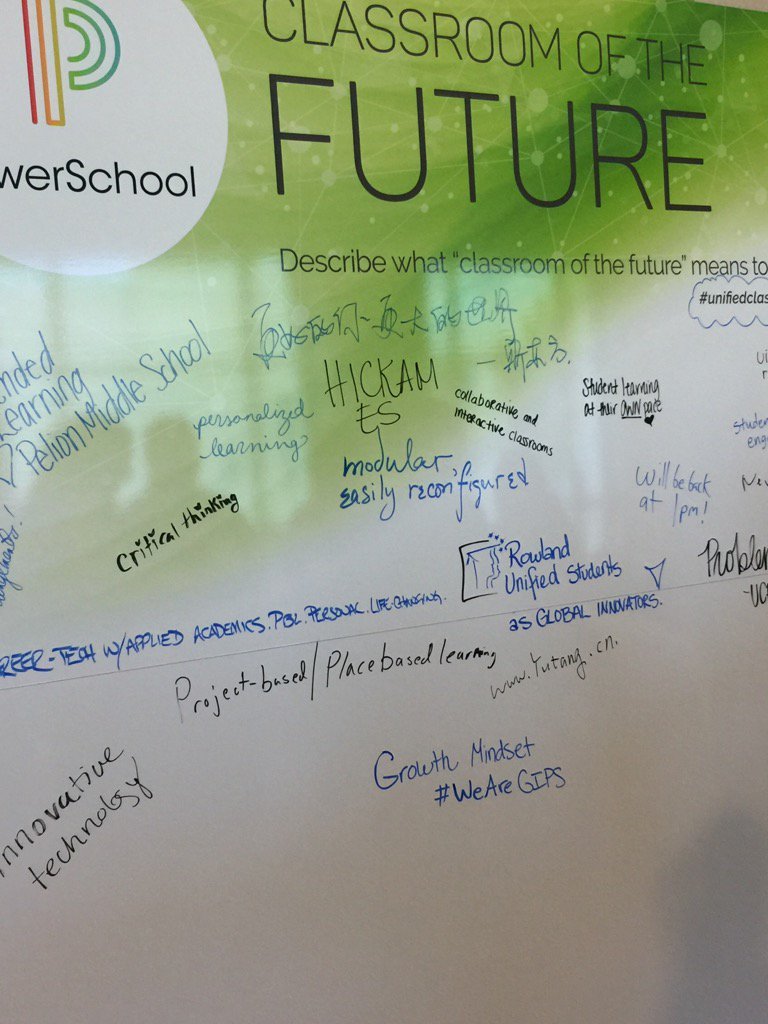 CLASSROOM OF THE
FUTURE
werSchool
Describe what "classroom of the future" means to
#unifiedclas
nded
Learning
Pelion Middle School
HICKAM
ES
personalized
learning
collaborative and
interactive classrooms
Student learning
at their OWN pace
modular,
easily reconfigured
critical thinking
Will be back
at 1pm!
Studen
eng
Rowland
Unified Students
as GLOBAL INNOVATORS.
Problem
REER-TECH W/APPLIED ACADEMICS. PBL. PERSONAL. LIFE-CHANGING.
Project-based/Placebased learning
www.Yutang.cn.
Growth Mindset
#WeAreGIPS
innovative
technology